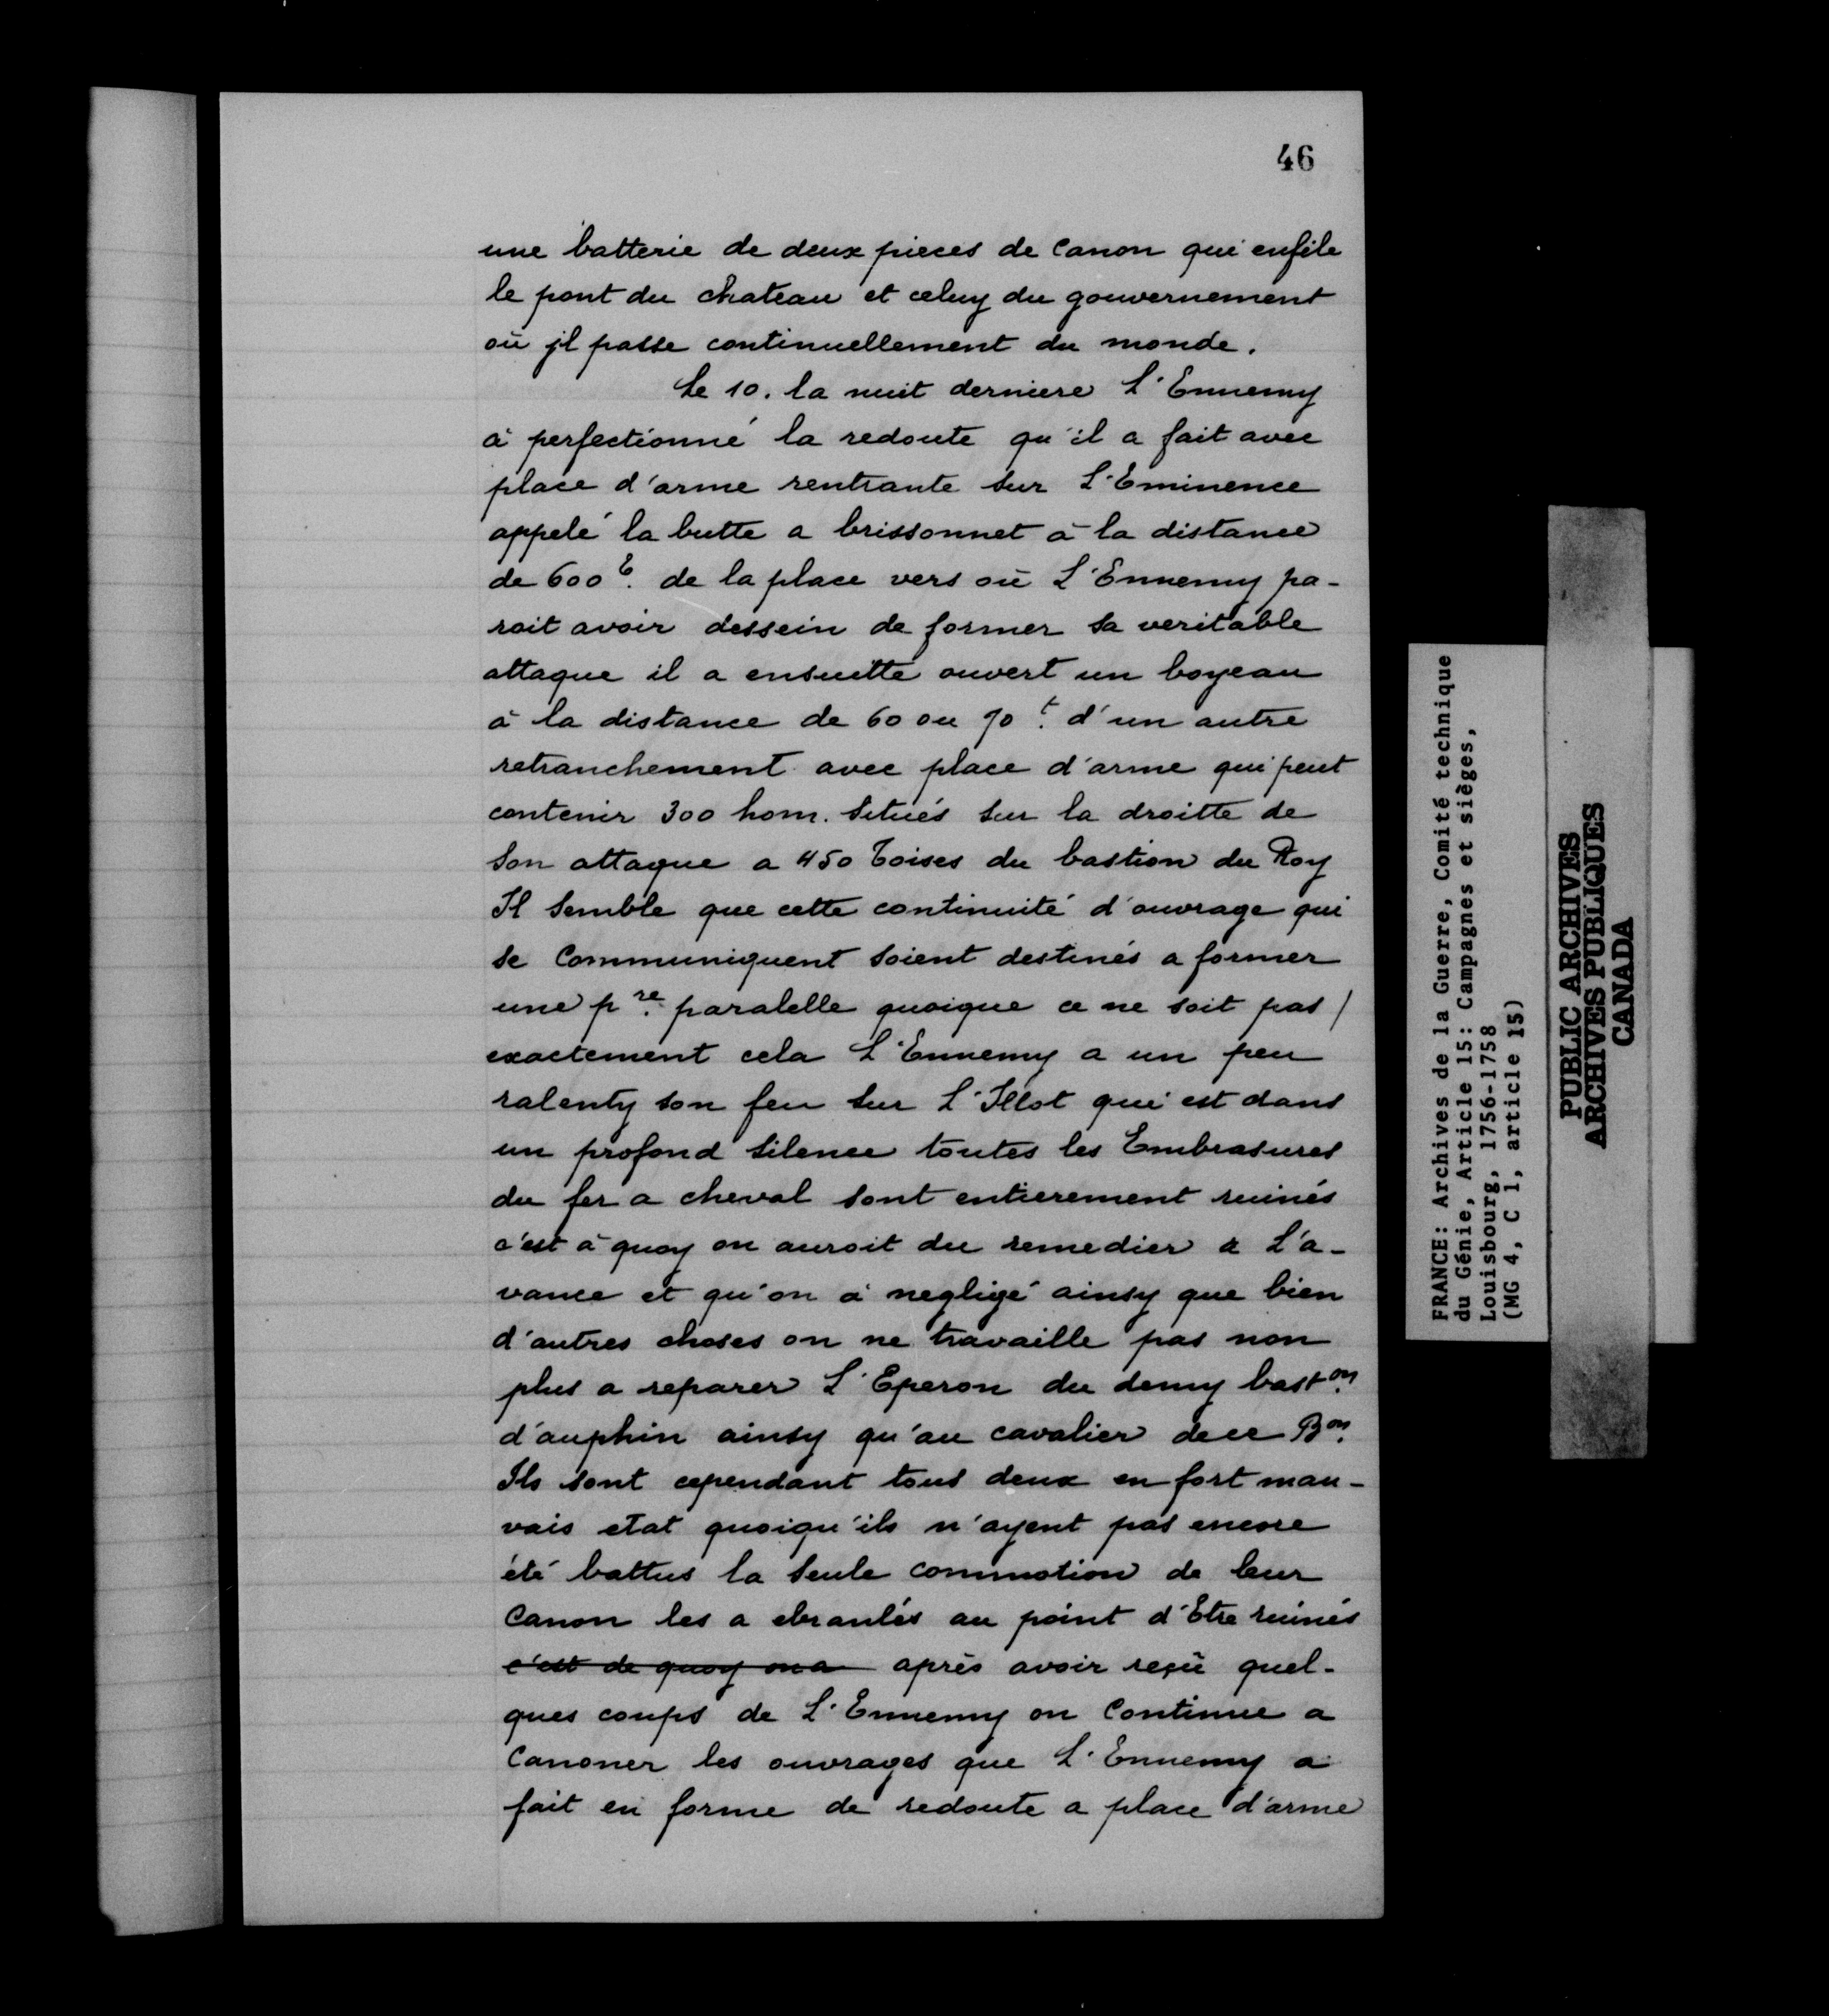 46
une batterie de deux pieces de Canon qui enfile
le pont du chateau et celuy du gouvernement
où jl passe continuellement du monde.
Le 10. la nuit derniere L'Ennemy
à perfectionné la redoute qu'il a fait avec
place d'arme rentrante sur L'Eminence
appelé la butte a brissonnet à la distance
de 600 t. de la place vers où L'Ennemy pa-
roit avoir dessein de former sa veritable
attaque il a ensuitte ouvert un boyeau
à la distance de 60 ou 70 t. d'un autre
retranchement avec place d'arme qui peut
contenir 300 hom. situés sur la droitte de
son attaque a 450 toises du bastion du Roy
Il semble que cette continuité d'ouvrage qui
se Communiquent soient destinés a former
une pre. paralelle quoique ce ne soit pas /
exactement cela L'Ennemy a un peu
ralenty son feu sur L'Illot qui est dans
un profond silence toutes les Embrasures
du fer a cheval sont entierement ruinés
c'est à quoy on auroit du remedier a L'a-
vance et qu'on à negligé ainsy que bien
d'autres choses on ne travaille pas non
plus a reparer L'Eperon du demy baston.
d'auphin ainsy qu'au cavalier de ce Bon.
Ils sont cependant tous deux en fort mau-
vais etat quoiqu'ils n'ayent pas encore
été battus la seule commotion de leur
Canon les a ebranlés au point d'Etre ruinés
c'est de quoy on a après avoir reçü quel-
ques coups de L'Ennemy on Continue a
Canoner les ouvrages que L'Ennemy a
fait en forme de redoute a place d'arme
FRANCE: Archives de la Guerre, Comité technique
du Génie, Article 15: Campagnes et sièges,
Louisbourg, 1756-1758
(MG 4, C 1, article 15)
PUBLIC ARCHIVES
ARCHIVES PUBLIQUES
CANADA